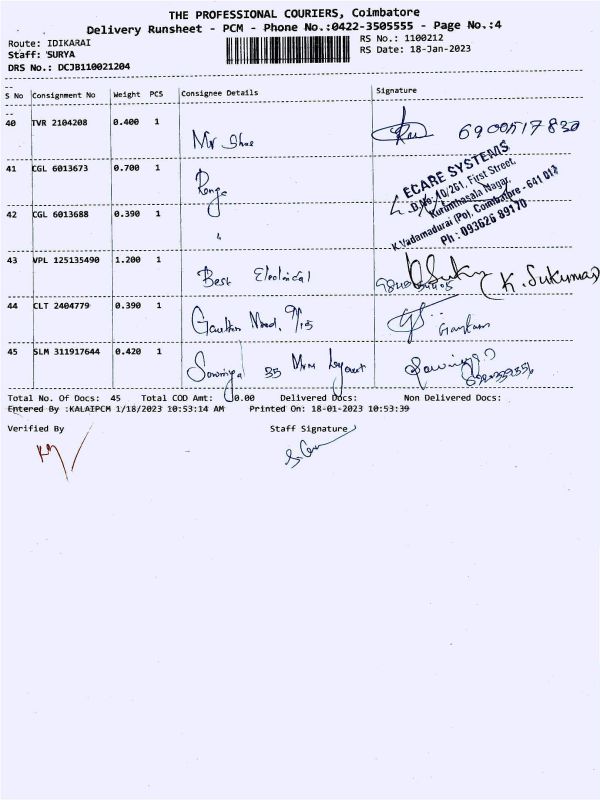 THE PROFESSIONAL COURIERS, Coimbatore
Delivery Runsheet - PCM - Phone No.:0422-3505555 - Page No.:4
Route: IDIKARAI
RS No.: 1100212
Staff: SURYA
RS Date: 18-Jan-2023
DRS No.: DCJB110021204
S No Consignment No Weight PCS Consignee Details Signature
40 TVR 2104208 0.400 1
Mr
41 CGL 6013673 0.700 1
ECARE SYSTEMS
D.No:40/261, First Street,
Kurinthasala Nagar,
K.Vadamadurai (Po), Coimbatore - 641 017
Ph : 093626 89170
42 CGL 6013688 0.390 1
43 VPL 125135490 1.200 1
Best Electrical (K. Sukumar)
44 CLT 2404779 0.390 1
9/15
45 SLM 311917644 0.420 1
Sowmiya 35 Layout
Total No. Of Docs: 45 Total COD Amt: 0.00 Delivered Docs: Non Delivered Docs:
Entered By :KALAIPCM 1/18/2023 10:53:14 AM Printed On: 18-01-2023 10:53:39
Verified By Staff Signature